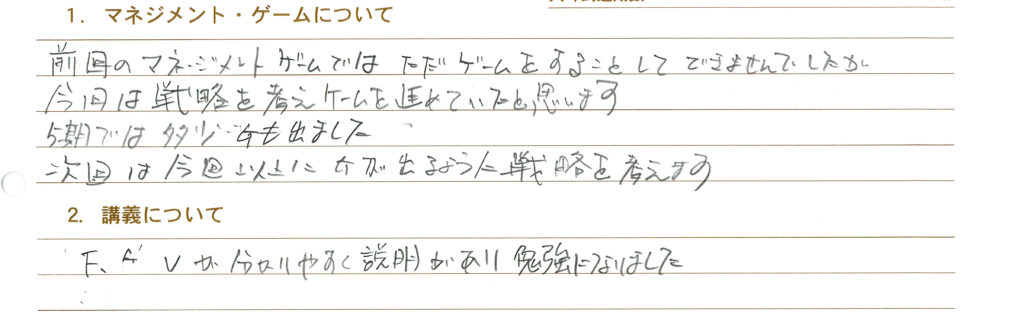 1. マネジメント・ゲームについて
前回のマネージメントゲームではただゲームをすることしてできませんでしたが
今回は戦略を考えゲームを進めていたと思います
5期では多少Gも出ました
次回は今回以上にGが出るような戦略を考えます
2. 講義について
F、G Vが分かりやすく説明があり勉強になりました